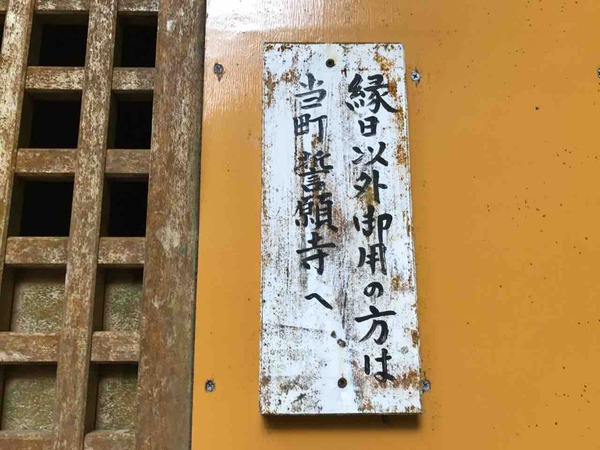 縁日以外御用の方は
当町誓願寺へ